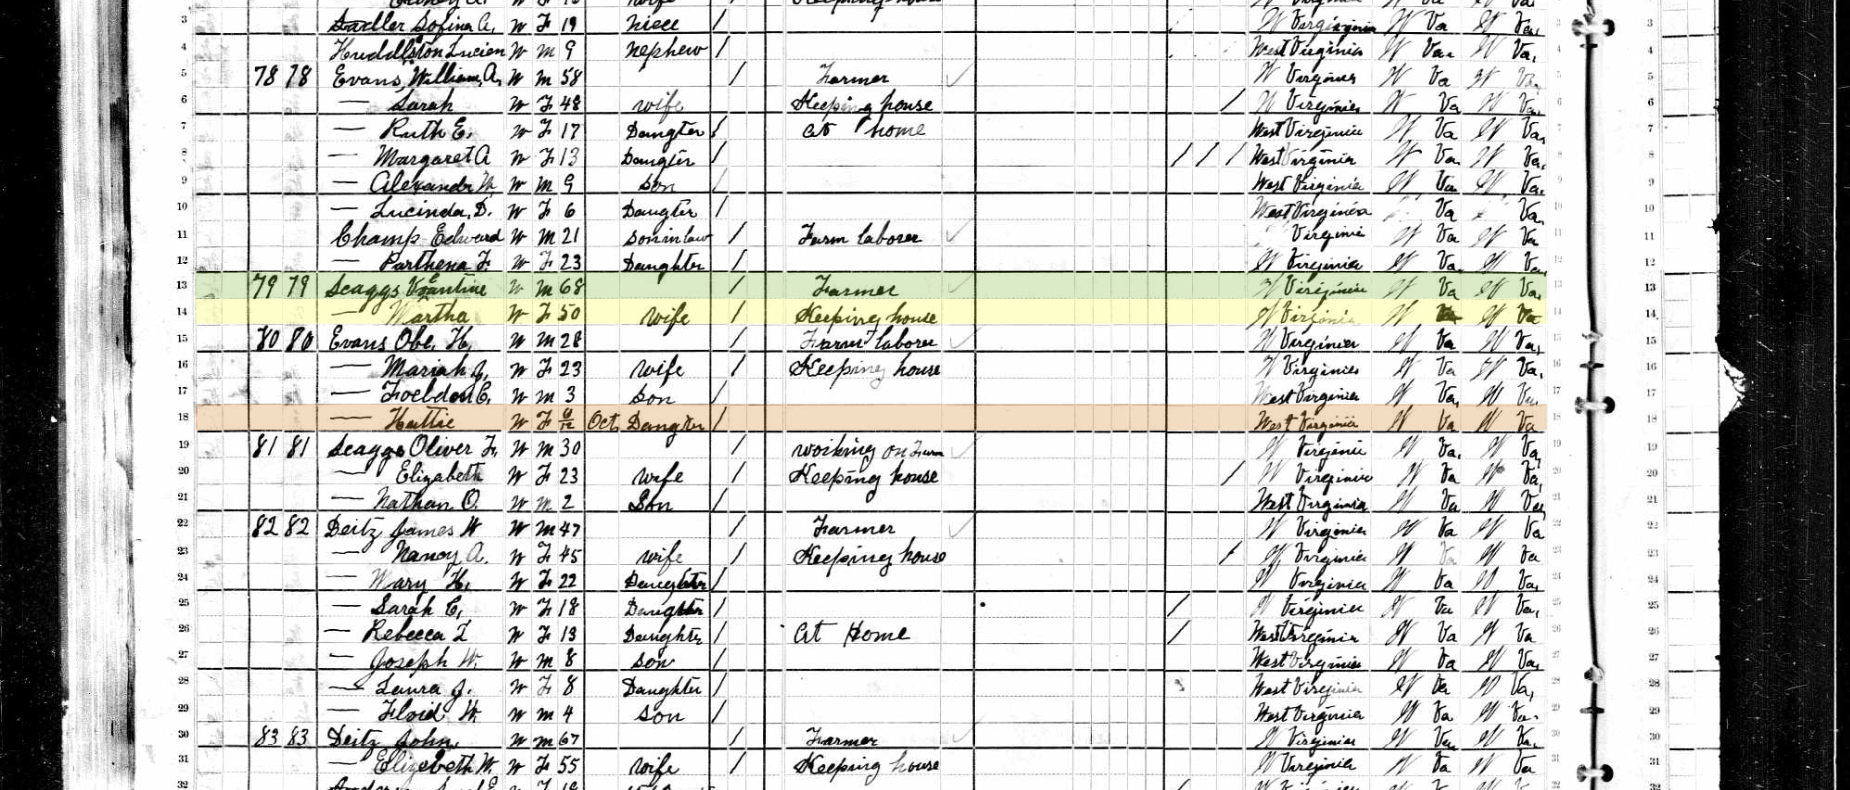 3 Sadler Sofina A, W F 19 niece W Virginia W Va W Va, 3
4 Huddlston Lucien W M 9 nephew / West Virginia W Va. W Va, 4
5 78 78 Evans, William, A, W M 58 / Farmer W Virginia W Va W Va. 5
6 — Sarah W F 48 wife Keeping house / W Virginia W Va W Va, 6
7 — Ruth E. W F 17 Daugter / at home West Virginia W Va W Va, 7
8 — Margaret A W F 13 Daugter / / / / West Virginia W Va. W Va, 8
9 — Alexandr W M 9 son / West Virginia W Va. W Va. 9
10 — Lucinda, D. W F 6 Daugter / West Virginia Va Va, 10
11 Champ Edward W M 21 soninlaw / Farm laborer Virginia W Va W Va 11
12 — Parthena F. W F 23 Daughter / W Virginia W Va. W Va, 12
13 79 79 Scaggs W M 68 / Farmer W Virginia W Va W Va. 13
14 — Martha W F 50 wife / Keeping house W Virginia W Va W Va 14
15 80 80 Evans Obe. H, W M 28 / Farm laborer W Virginia W Va W Va, 15
16 — Mariah W F 23 wife / Keeping house W Virginia W Va W Va, 16
17 — E, W M 3 son West Virginia W Va, W Va 17
18 — Hattie W F Oct, Daugter / West Virginia W Va W Va 18
19 81 81 Scaggs Oliver F, W M 30 / working on Farm W Virginia W Va. W Va, 19
20 — Elizabeth W F 23 wife / Keeping house / W Virginia W Va W Va, 20
21 — Nathan O. W M 2 Son / West Virginia W Va W Va, 21
22 82 82 Deitz James W W M 47 / Farmer W Virginia W Va W Va 22
23 — Nancy A. W F 45 wife / Keeping house / W Virginia W Va W Va 23
24 — Mary H, W F 22 Daughter / W Virginia W Va W Va, 24
25 — Sarah C, W F 18 Daughter / / W Virginia W Va W Va, 25
26 — Rebecca W F 13 Daughter / At Home / West Virginia W Va W Va 26
27 — Joseph W. W M 8 son / West Virginia W Va W Va, 27
28 — Laura J. W F 8 Daughter / West Virginia W Va W Va, 28
29 — Floid W. W M 4 son / West Virginia W Va W Va. 29
30 83 83 Deitz John, W M 67 / Farmer W Virginia W Va W Va. 30
31 — Elizebeth W. W F 55 wife / Keeping house W Virginia W Va W Va 31
32